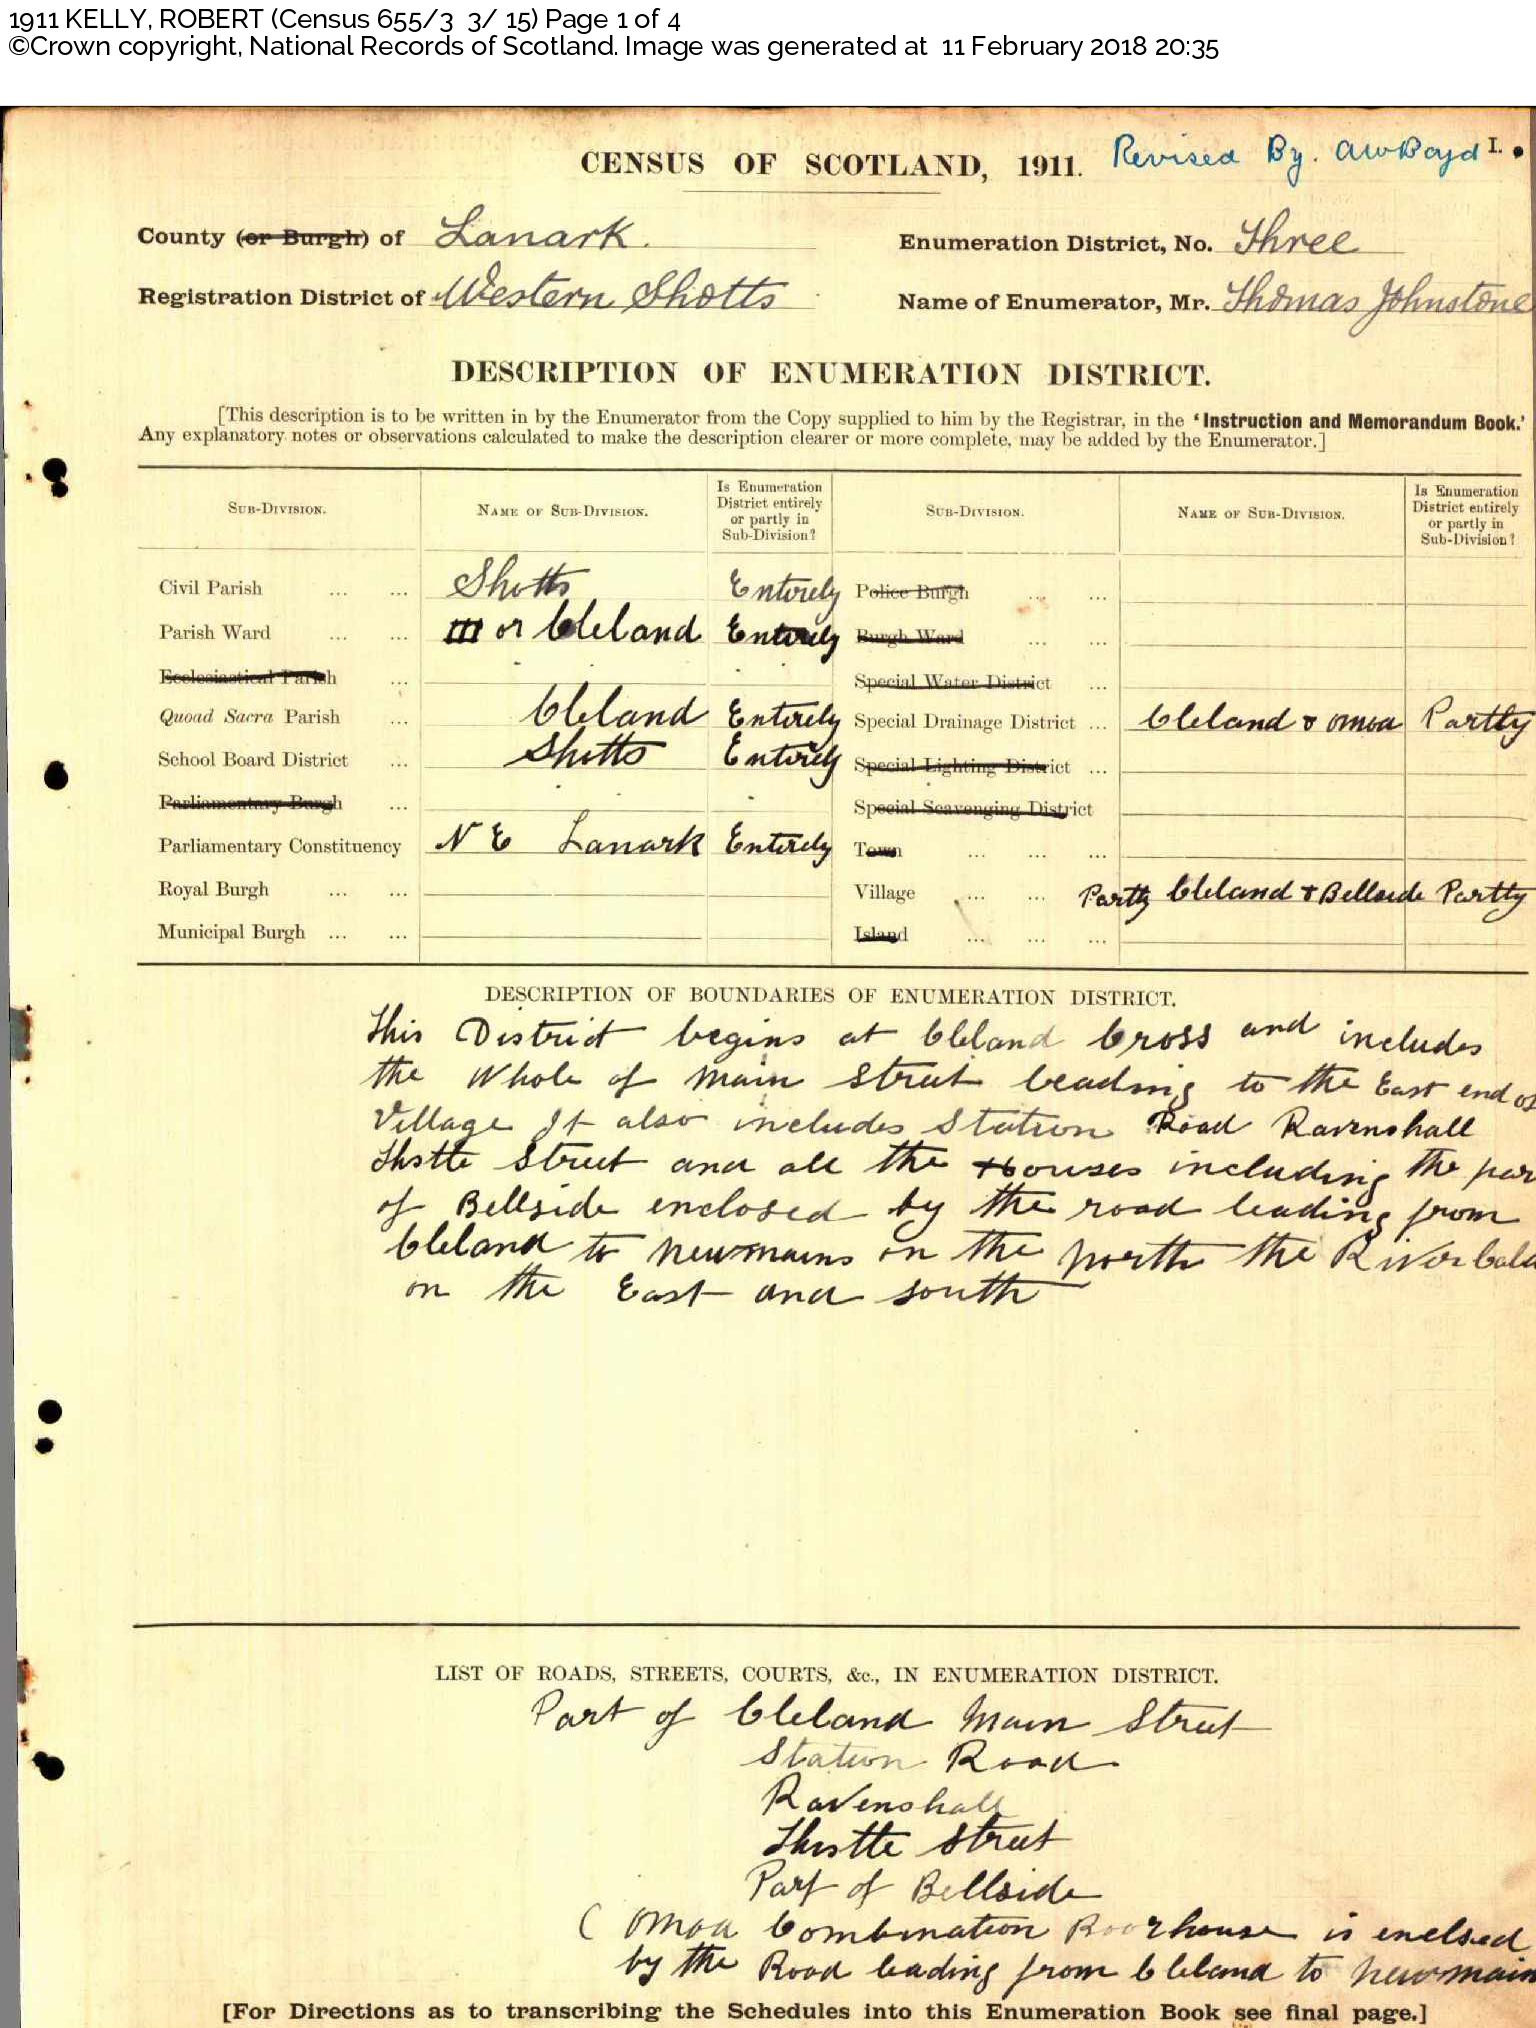 1911 KELLY, ROBERT (Census 655/3 3/ 15) Page 1 of 4
©Crown copyright, National Records of Scotland. Image was generated at 11 February 2018 20:35
CENSUS OF SCOTLAND, 1911. Revised By. AWBoyd I.
County (or Burgh) of Lanark. Enumeration District, No. Three
Registration District of Western Shotts Name of Enumerator, Mr. Thomas Johnstone
DESCRIPTION OF ENUMERATION DISTRICT.
[This description is to be written in by the Enumerator from the Copy supplied to him by the Registrar, in the 'Instruction and Memorandum Book.'
Any explanatory notes or observations calculated to make the description clearer or more complete, may be added by the Enumerator.]
SUB-DIVISION. NAME OF SUB-DIVISION. Is Enumeration District entirely or partly in Sub-Division? SUB-DIVISION. NAME OF SUB-DIVISION. Is Enumeration District entirely or partly in Sub-Division?
Civil Parish ... ... Shotts Entirely Police Burgh ... ...
Parish Ward ... ... III or Cleland Entirely Burgh Ward ... ...
Ecclesiastical Parish ... Special Water District ...
Quoad Sacra Parish ... Cleland Entirely Special Drainage District ... Cleland & Omoa Partly
School Board District ... Shotts Entirely Special Lighting District ...
Parliamentary Burgh ... Special Scavenging District
Parliamentary Constituency N E Lanark Entirely Town ... ... ...
Royal Burgh ... ... Village ... ... Partly Cleland & Bellside Partly
Municipal Burgh ... ... Island ... ... ...
DESCRIPTION OF BOUNDARIES OF ENUMERATION DISTRICT.
This District begins at Cleland Cross and includes
the Whole of Main Street leading to the East end of
Village It also includes Station Road Ravenshall
Thistle Street and all the Houses including the par
of Bellside enclosed by the road leading from
Cleland to Newmains on the North the River Cald
on the East and South
LIST OF ROADS, STREETS, COURTS, &c., IN ENUMERATION DISTRICT.
Part of Cleland Main Street
Station Road
Ravenshall
Thistle Street
Part of Bellside
( Omoa Combination Poorhouse is enclsed
by the Road leading from Cleland to Newmain
[For Directions as to transcribing the Schedules into this Enumeration Book see final page.]